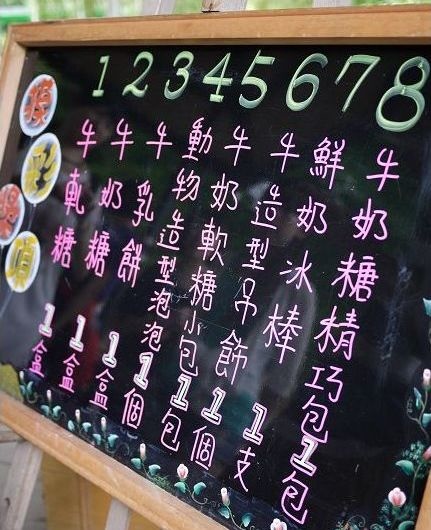 摸彩獎項
1 2 3 4 5 6 7 8
牛軋糖1盒
牛奶糖1盒
牛乳餅1盒
動物造型泡泡1個
牛奶軟糖小包1包
牛造型吊飾1個
鮮奶冰棒1支
牛奶糖精巧包1包